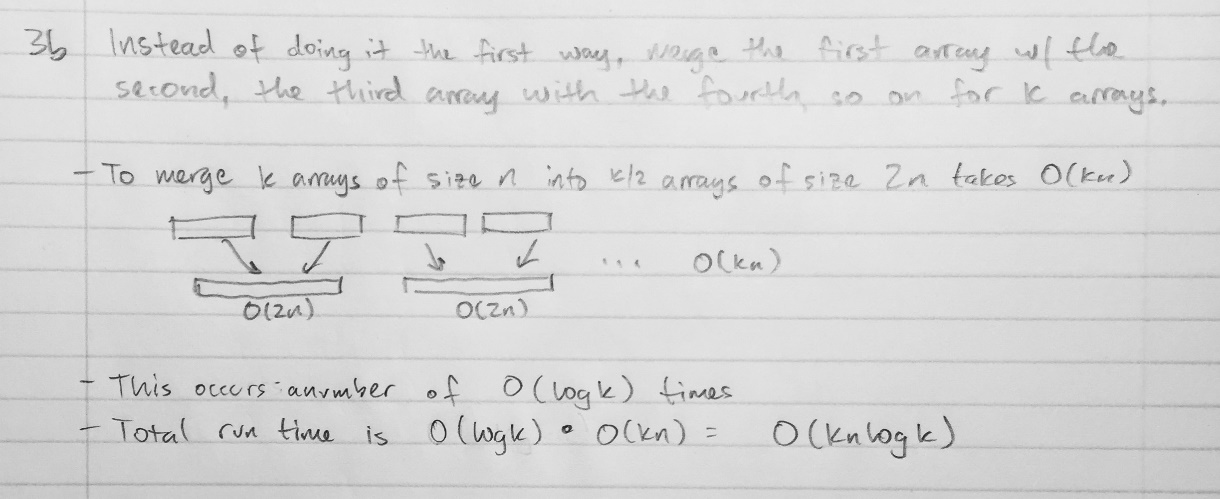 3b Instead of doing it the first way, merge the first array w/ the
second, the third array with the fourth, so on for k arrays.
- To merge k arrays of size n into k/2 arrays of size 2n takes O(kn)
... O(kn)
O(2n) O(2n)
- This occurs a number of O(logk) times
- Total run time is O(logk) • O(kn) = O(knlogk)